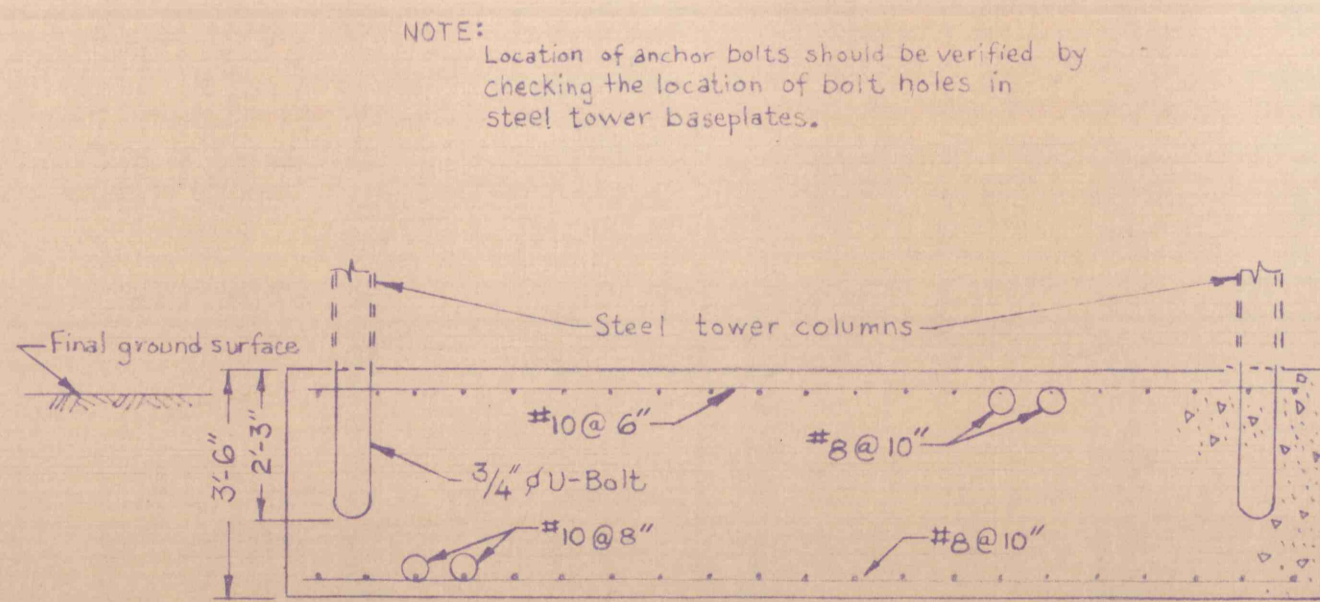 NOTE:
Location of anchor bolts should be verified by
checking the location of bolt holes in
steel tower baseplates.
Steel tower columns
Final ground surface
#10@6"
#8@10"
3'-6"
2'-3"
3/4" ø U-Bolt
#10@8"
#8@10"